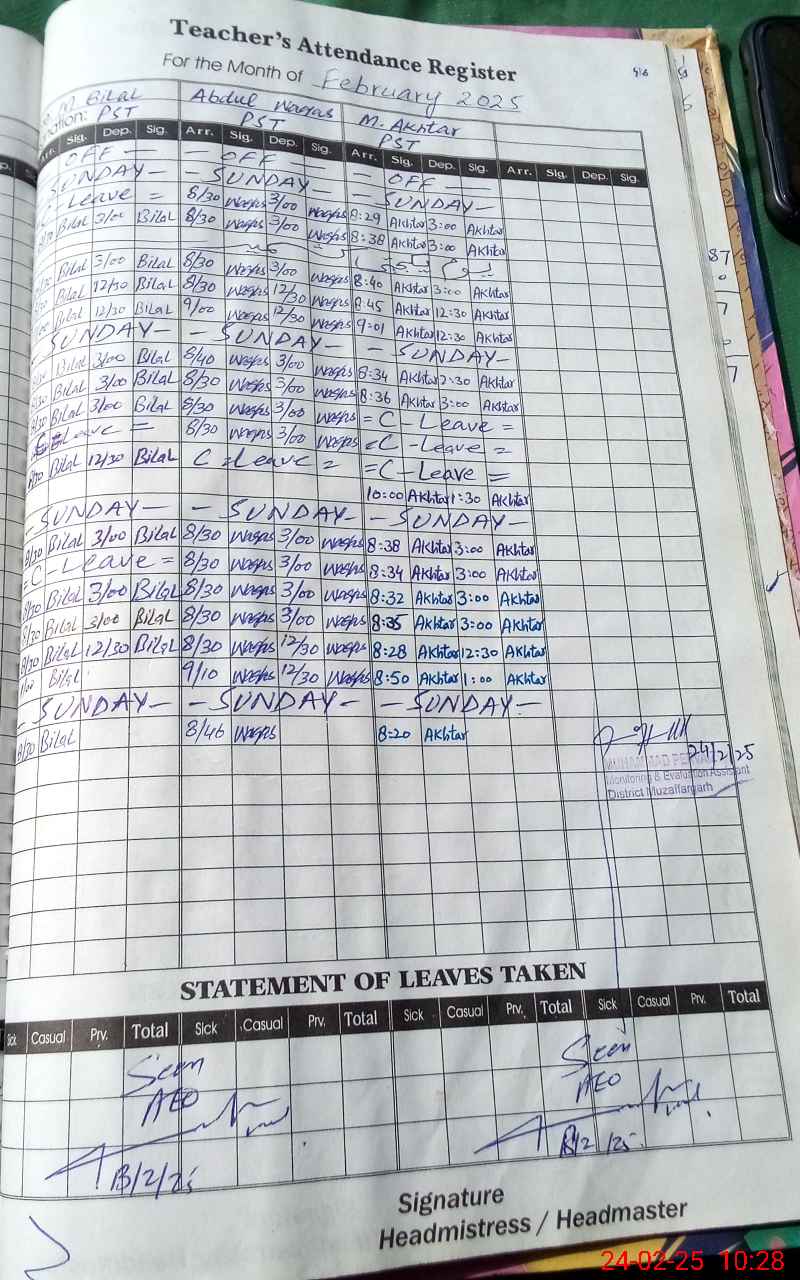 Teacher's Attendance Register
For the Month of February 2025
M. Bilal Abdul Waqas M. Akhtar
PST PST PST
Sig. Dep. Sig. Arr. Sig. Dep. Sig. Arr. Sig. Dep. Sig. Arr. Sig. Dep. Sig.
OFF — — OFF — — OFF —
SUNDAY — — SUNDAY — — SUNDAY —
C Leave = 8/30 Waqas 3/00 Waqas 8:29 Akhtar 3:00 Akhtar
Bilal 3/00 Bilal 8/30 Waqas 3/00 Waqas 8:38 Akhtar 3:00 Akhtar
Bilal 3/00 Bilal 8/30 Waqas 3/00 Waqas 8:40 Akhtar 3:00 Akhtar
Bilal 12/30 Bilal 8/30 Waqas 12/30 Waqas 8:45 Akhtar 12:30 Akhtar
Bilal 12/30 Bilal 9/00 Waqas 12/30 Waqas 9:01 Akhtar 12:30 Akhtar
SUNDAY — — SUNDAY — — SUNDAY —
Bilal 3/00 Bilal 8/40 Waqas 3/00 Waqas 8:34 Akhtar 2:30 Akhtar
Bilal 3/00 Bilal 8/30 Waqas 3/00 Waqas 8:36 Akhtar 3:00 Akhtar
Bilal 3/00 Bilal 8/30 Waqas 3/00 Waqas = C - Leave =
Leave = 8/30 Waqas 3/00 Waqas = C - Leave =
8/30 Bilal 12/30 Bilal C = Leave = = C - Leave =
10:00 Akhtar 1:30 Akhtar
— SUNDAY — — SUNDAY — — SUNDAY —
8/30 Bilal 3/00 Bilal 8/30 Waqas 3/00 Waqas 8:38 Akhtar 3:00 Akhtar
= C - Leave = 8/30 Waqas 3/00 Waqas 8:34 Akhtar 3:00 Akhtar
8/30 Bilal 3/00 Bilal 8/30 Waqas 3/00 Waqas 8:32 Akhtar 3:00 Akhtar
8/30 Bilal 3/00 Bilal 8/30 Waqas 3/00 Waqas 8:35 Akhtar 3:00 Akhtar
8/30 Bilal 12/30 Bilal 8/30 Waqas 12/30 Waqas 8:28 Akhtar 12:30 Akhtar
Bilal 9/10 Waqas 12/30 Waqas 8:50 Akhtar 1:00 Akhtar
— SUNDAY — — SUNDAY — — SUNDAY —
8/30 Bilal 8/46 Waqas 8:20 Akhtar
24/2/25
MUHAMMAD
Monitoring & Evaluation Assistant
District Muzaffargarh
STATEMENT OF LEAVES TAKEN
Sick Casual Prv. Total Sick Casual Prv. Total Sick Casual Prv. Total Sick Casual Prv. Total
Seen Seen
AEO AEO
13/2/25 13/2/25
Signature
Headmistress / Headmaster
24-02-25 10:28